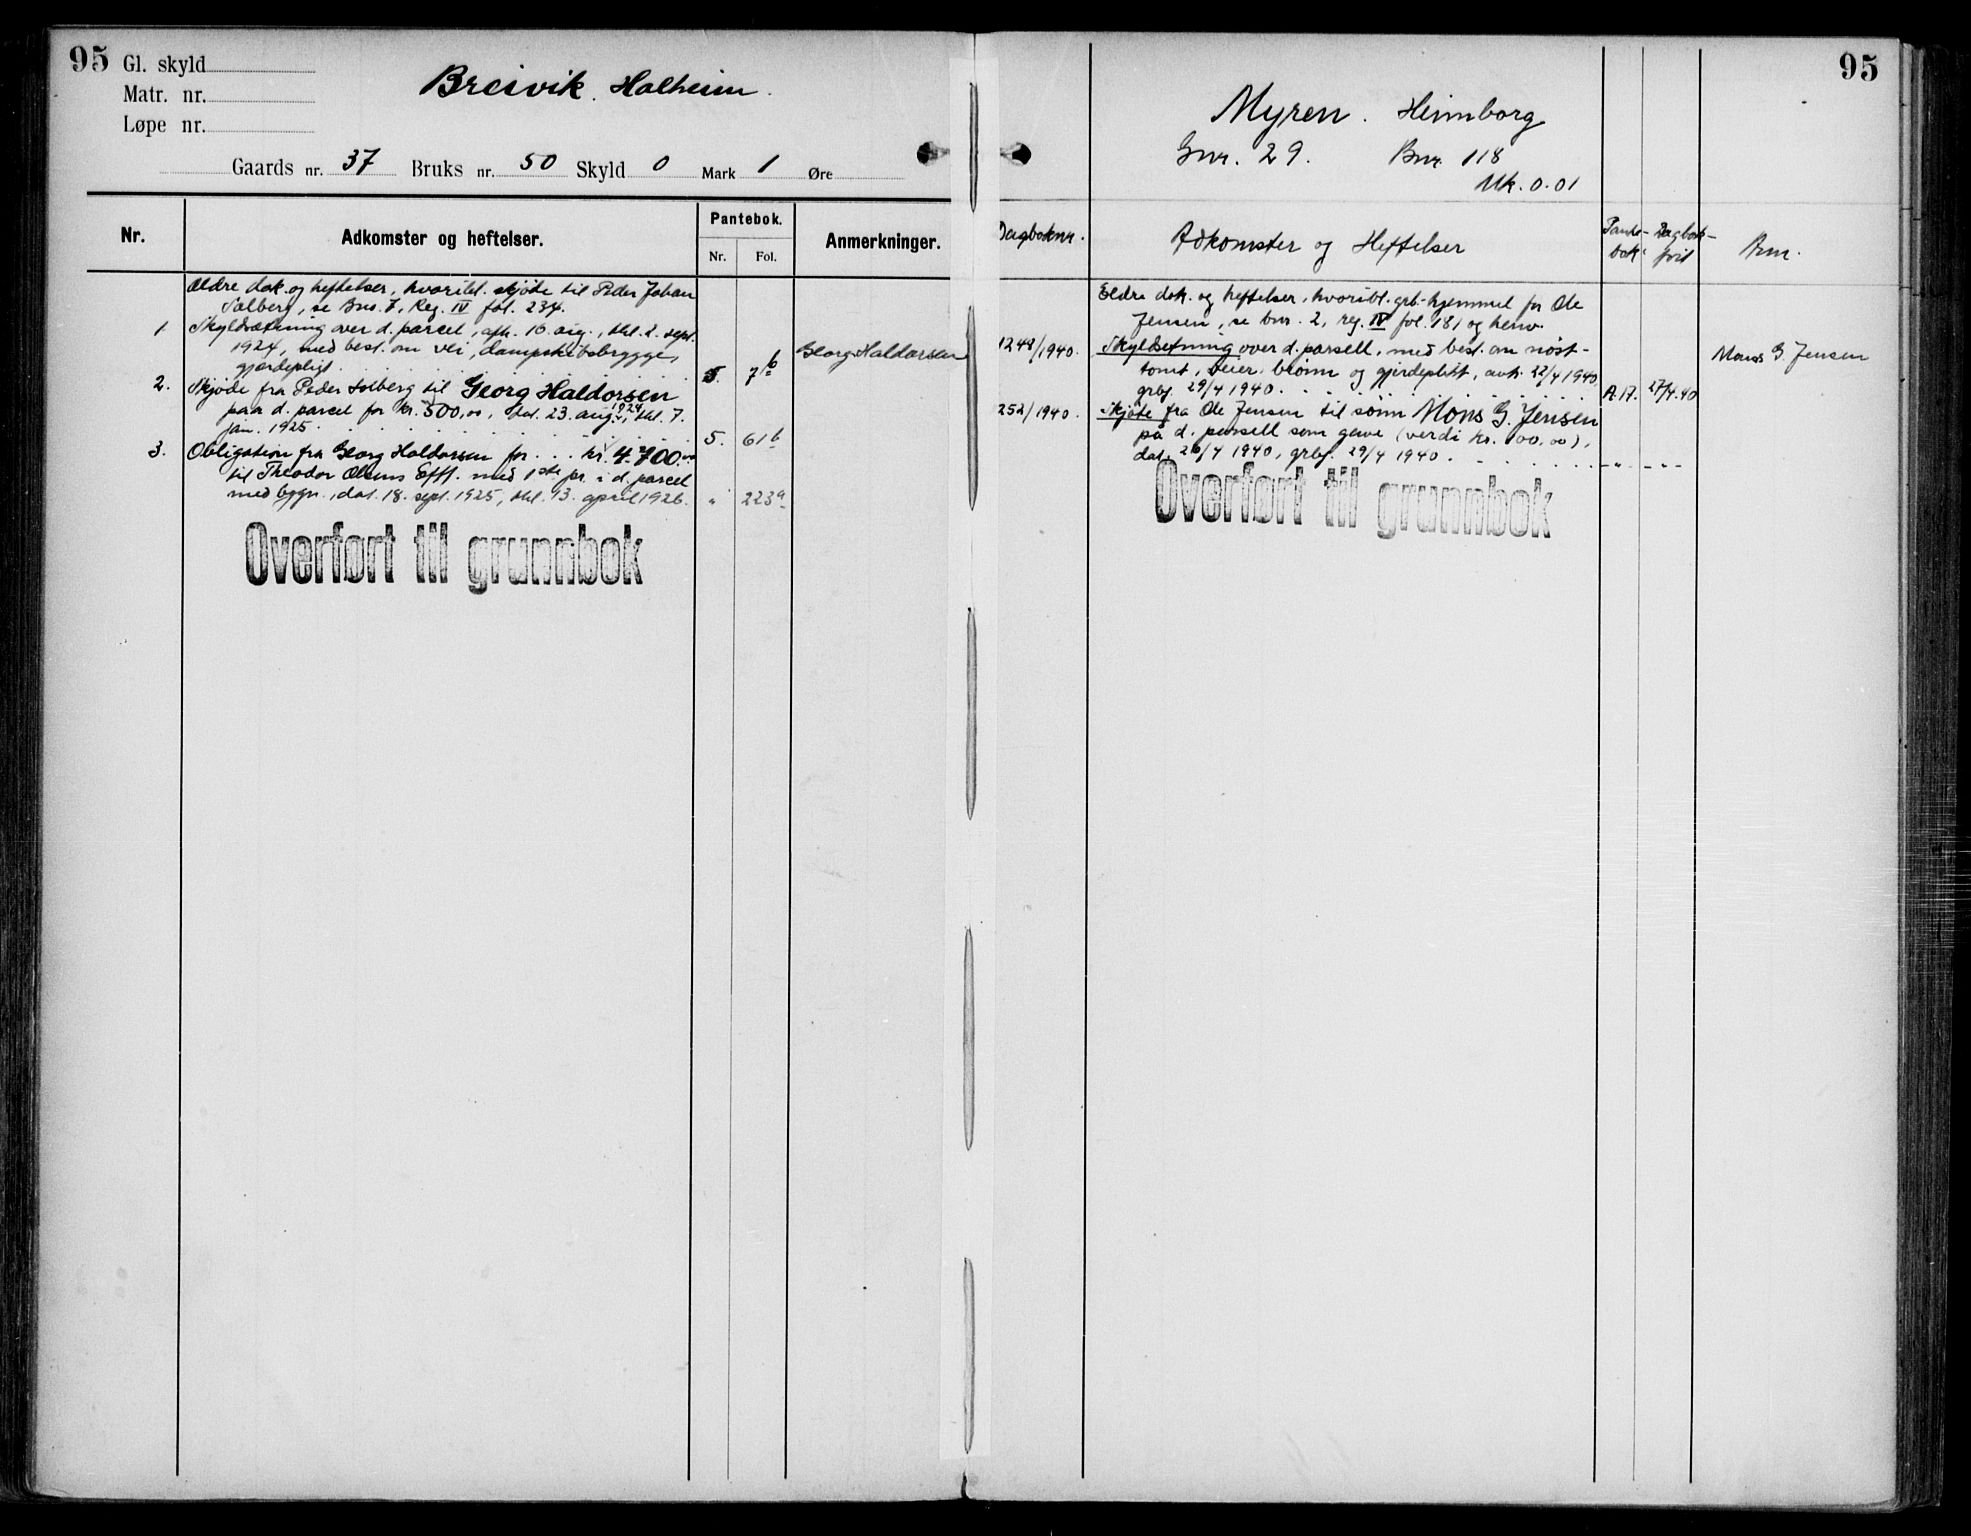 95
Gl. skyld
Matr. nr.
Løpe nr.
Breivik. Halheim.
Gaards nr. 37 Bruks nr. 50 Skyld 0 Mark 1 Øre
Nr.
Adkomster og heftelser.
Pantebok.
Nr. Fol.
Anmerkninger.
Ældre dok. og heftelser, hvoribl. skjøte til Peder Johan
Solberg, se Bns. 7, Reg. IV fol. 234.
1. Skyldsætning over d. parcel, afh. 16. aug., thl. 2. sept.
1924, med best. om vei, dampskibsbrygge,
gjærdepligt. 5. 7b Georg Haldorsen
2. Skjøde fra Peder Solberg til Georg Haldorsen
paa d. parcel for kr. 500,00, dat. 23. aug. 1924, thl. 7.
jan. 1925. 5. 61b
3. Obligation fra Georg Haldorsen for . . . kr. 4.700.00
til Theodor Olsens Eftf. med 1ste pr. i d. parcel
med bygn., dat. 18. sept. 1925, thl. 13. april 1926. " 223a
Overført til grunnbok
95
Myren. Heimborg
Gnr. 29. Bnr. 118
Mk. 0.01
Dagboknr.
Adkomster og Heftelser
Pante-
bok
Dagbok-
ført
Anm.
Eldre dok. og heftelser, hvoribl. grb.-hjemmel for Ole
Jensen, se bnr. 2, reg. IV fol. 181 og henv.
1248/1940. Skyldsetning over d. parsell, med best. om nøst-
tomt, veier, brønn og gjerdeplikt, avh. 22/4 1940,
grbf. 29/4 1940. A.17. 27/4.40 Mons G. Jensen
252/1940. Skjøte fra Ole Jensen til sønn Mons G. Jensen
på d. parsell som gave (verdi kr. 100,00),
dat. 26/4 1940, grbf. 29/4 1940. - " - - " -
Overført til grunnbok